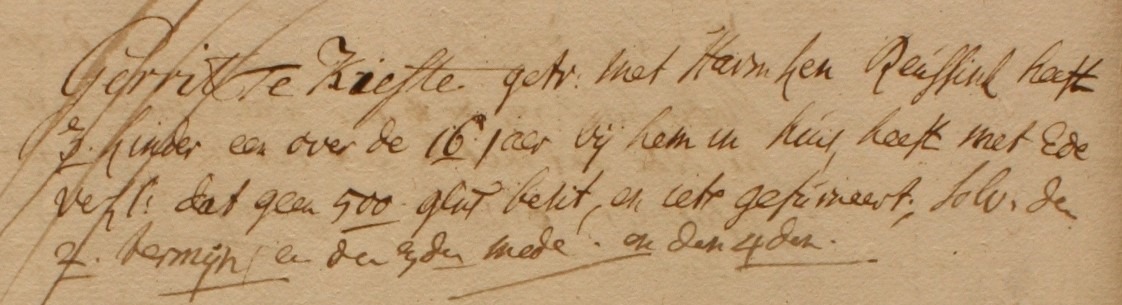 Gerrit te Kiefte getr. met Harmken Reussink heeft
3. kinder een over de 16 jaer bij hem in huis, heeft met Ede
verkl: dat geen 500 glns besit, en iets gefurneert, solv. den
2. termijn, en den 3den mede. en den 4den.